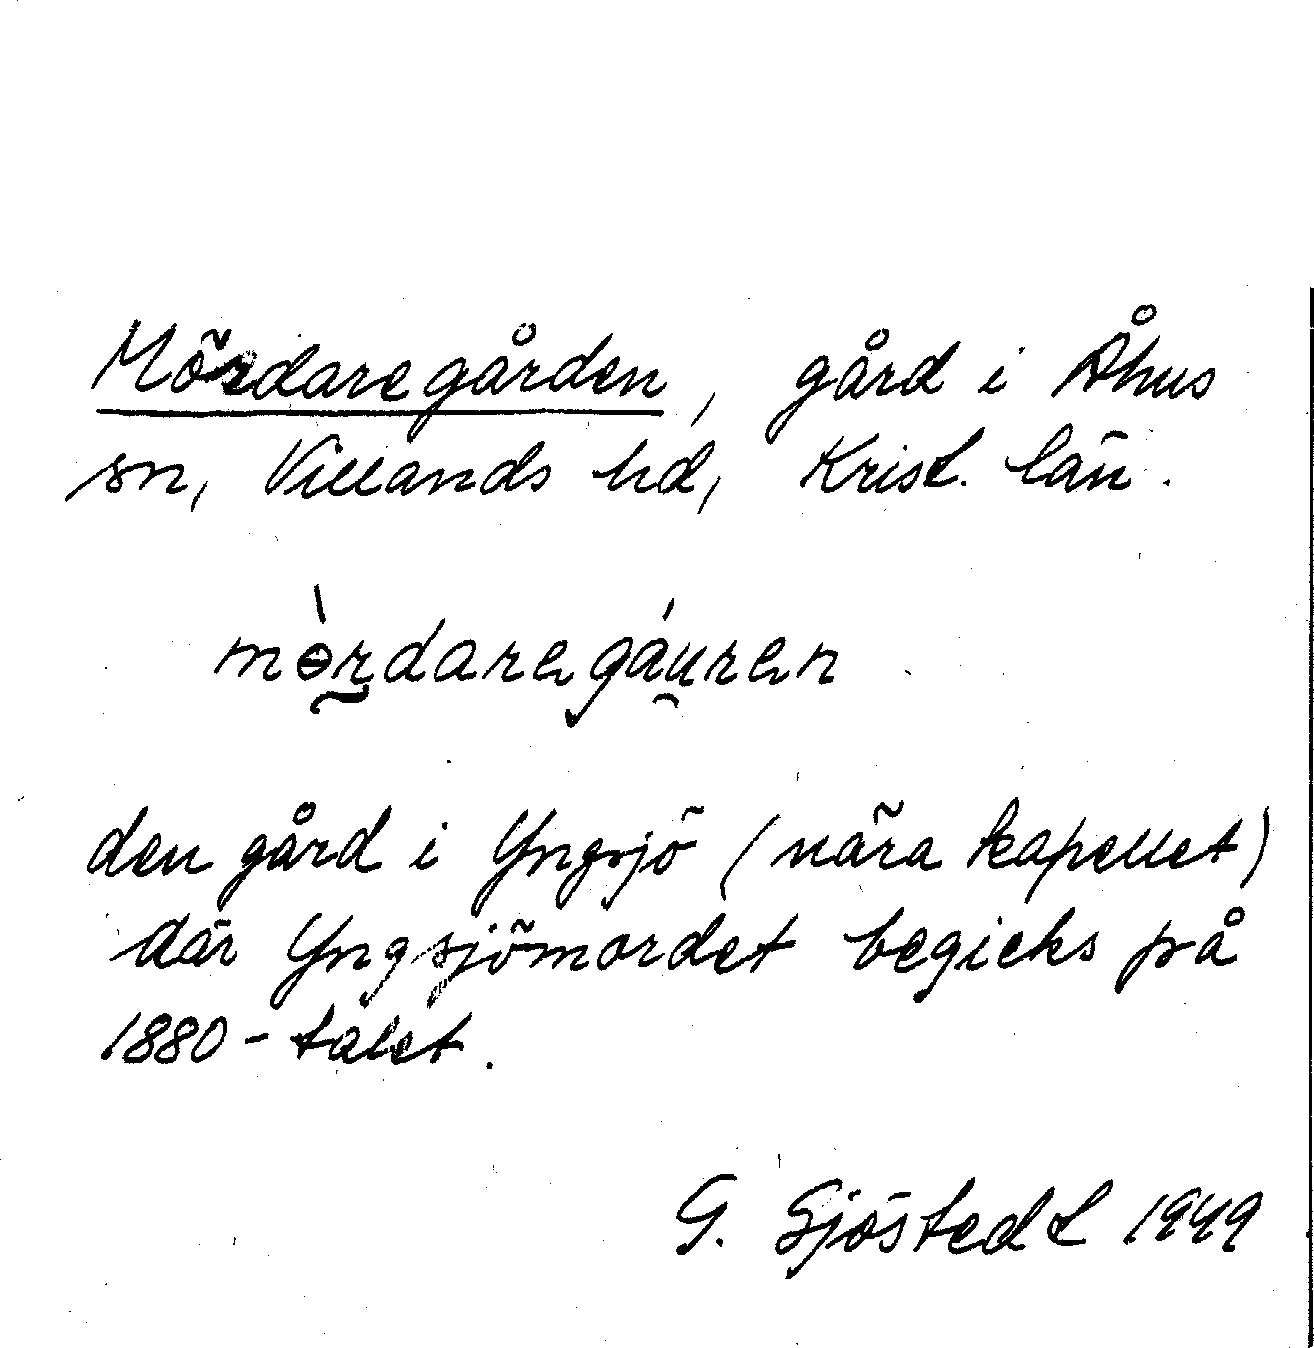 Mördaregården, gård i Åhus
sn, Villands hd, Krist. län.
mɵ̀rdaregáu̯ren
den gård i Yngsjö (nära kapellet)
där Yngsjömordet begicks på
1880-talet.
G. Sjöstedt 1949